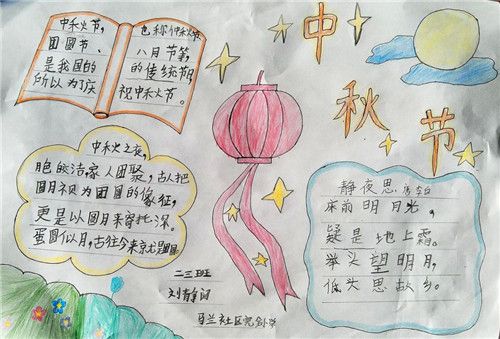 中秋节
中秋节,
团圆节、
是我国的
所以为了庆
也称仲秋节
八月节等,
的传统节日,
祝中秋节。
中秋之夜,
皎洁,家人团聚,古人把
圆月视为团圆的像征,
更是以圆月来寄托深。
蛋圆似月,古往今来
静夜思 李白
床前明月光,
疑是地上霜。
举头望明月,
低头思故乡。
二三班
刘静
马兰社区完全小学